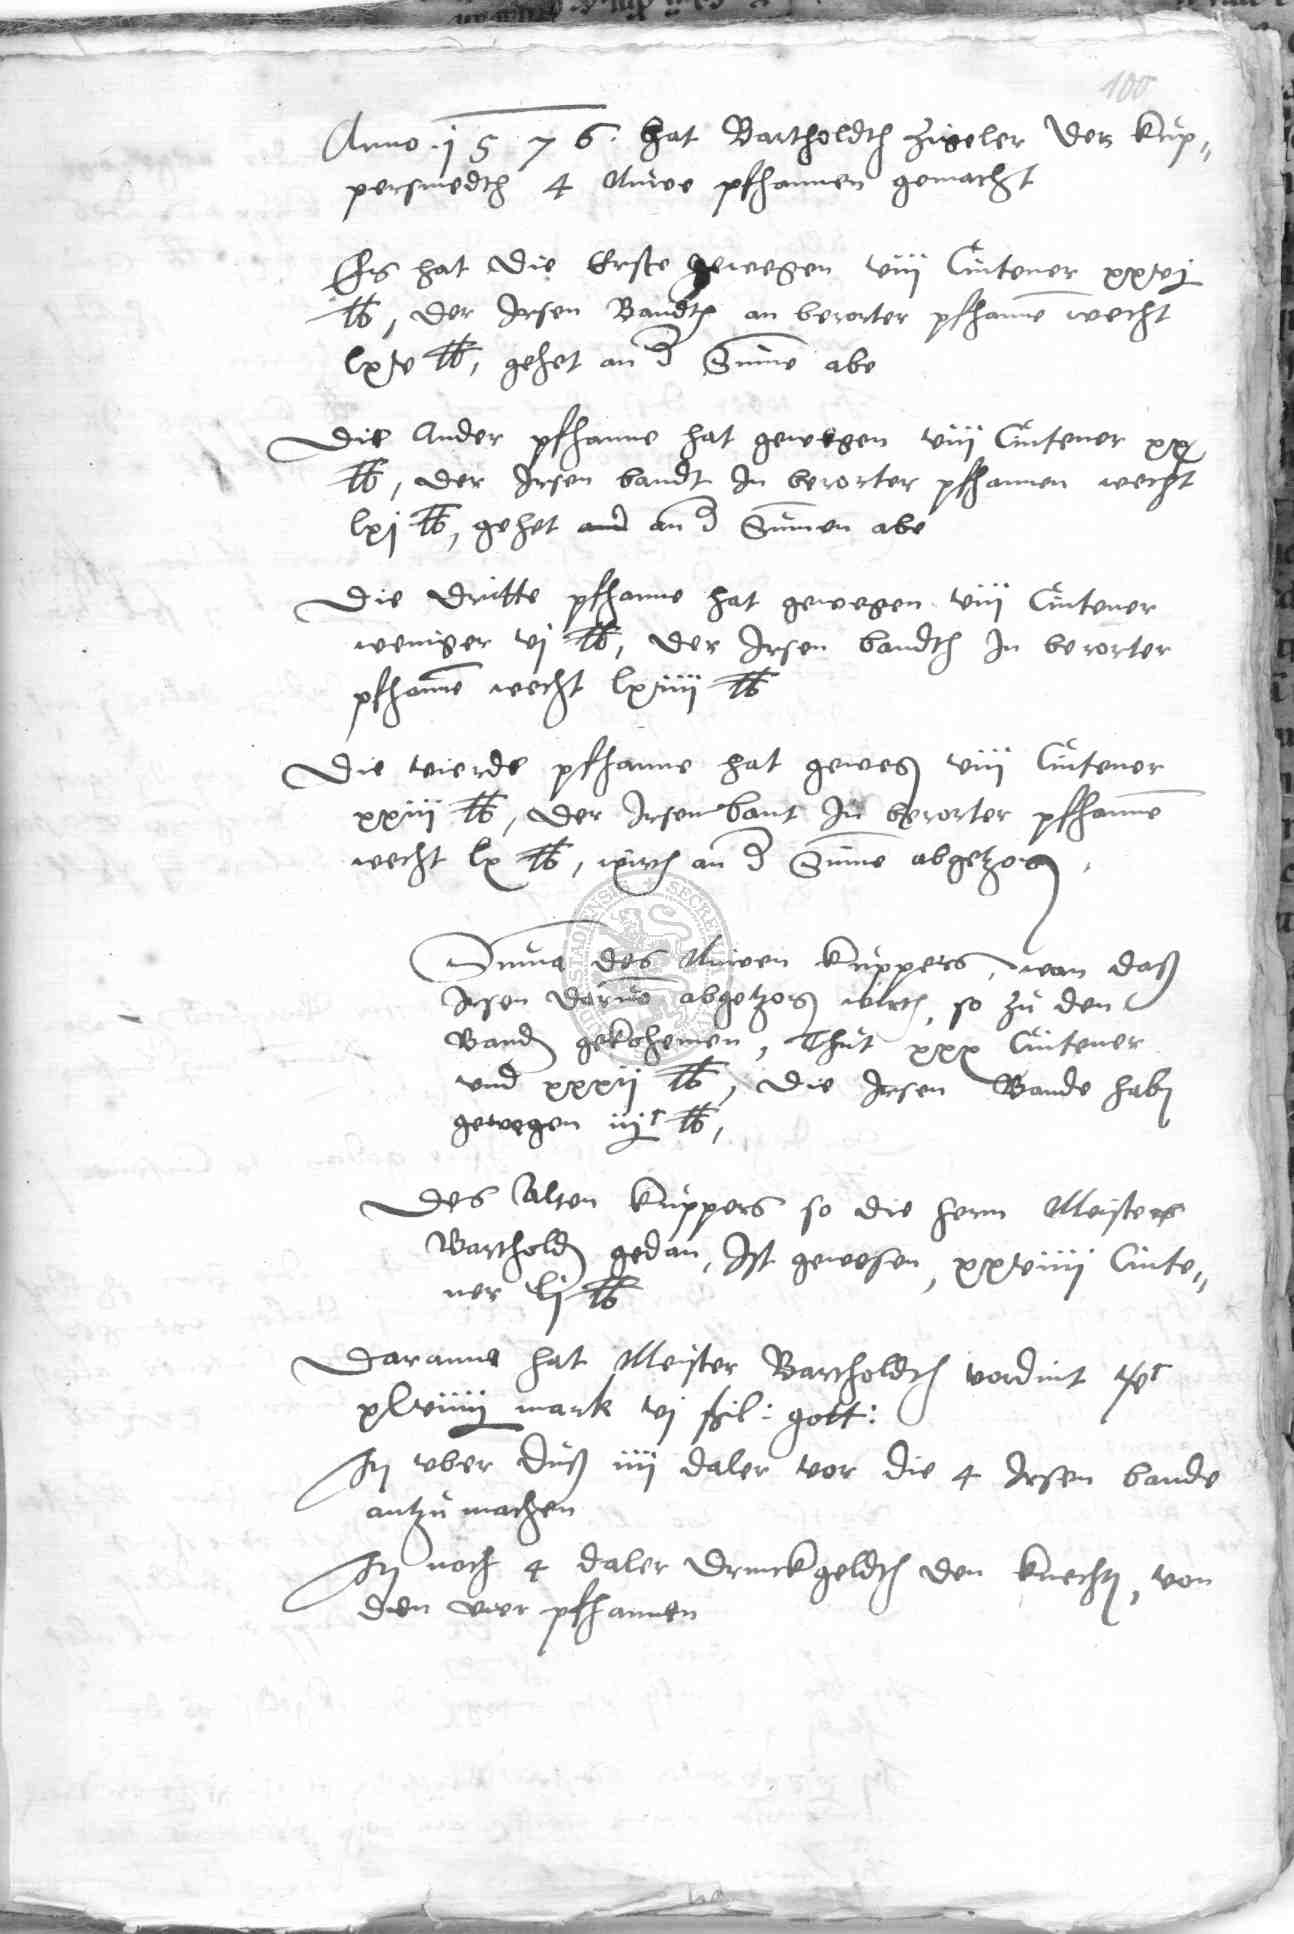 100
Anno · 1 5 7 6 · hat Bartholdth Zigeler der kup„
persmedth 4 Nuwe pfhannen gemacht
Es hat die Erste gewegen viii Cintener xxvj
℔, der Irsen Bandth an berorter pfhanne wecht
lxv ℔, gehet an d Summe abe
Die Ander pfhanne hat gewegen viii Cintener xx
℔, der Irsen bandt In berorter pfhannen wecht
lxj ℔, gehet an d Summen abe
Die dritte pfhanne hat gewegen viii Cintener
weniger vj ℔, der Irsen bandth In berorter
pfhanne wecht lxiiij ℔
Die vierde pfhanne hat geweg viii Cintener
xxiii ℔, der Irsen bant In berorter pfhanne
wecht lx ℔, wirth an d Summe abgetzog
Summa des Nuwen kuppers, wan daß
Irsen darvne abgetzog wirth, so zu den
Band gekohemen, Thut xxx Cintener
vnd xxxvj ℔, die Irsen Bande hab
gewegen iijc ℔,
Des Alten kuppers so die hern Meister
Barthold gedan, Ist gewesen, xxviiij Cinte„
ner lj ℔
Daranne hat Meister Bartholdth vordint
xlviiij mark vj ßil: gott:
It vber duß iiij daler vor die 4 Irsen bande
antzu machen
It noch 4 daler drinckgeldth den knecht, von
den vier pfhannen